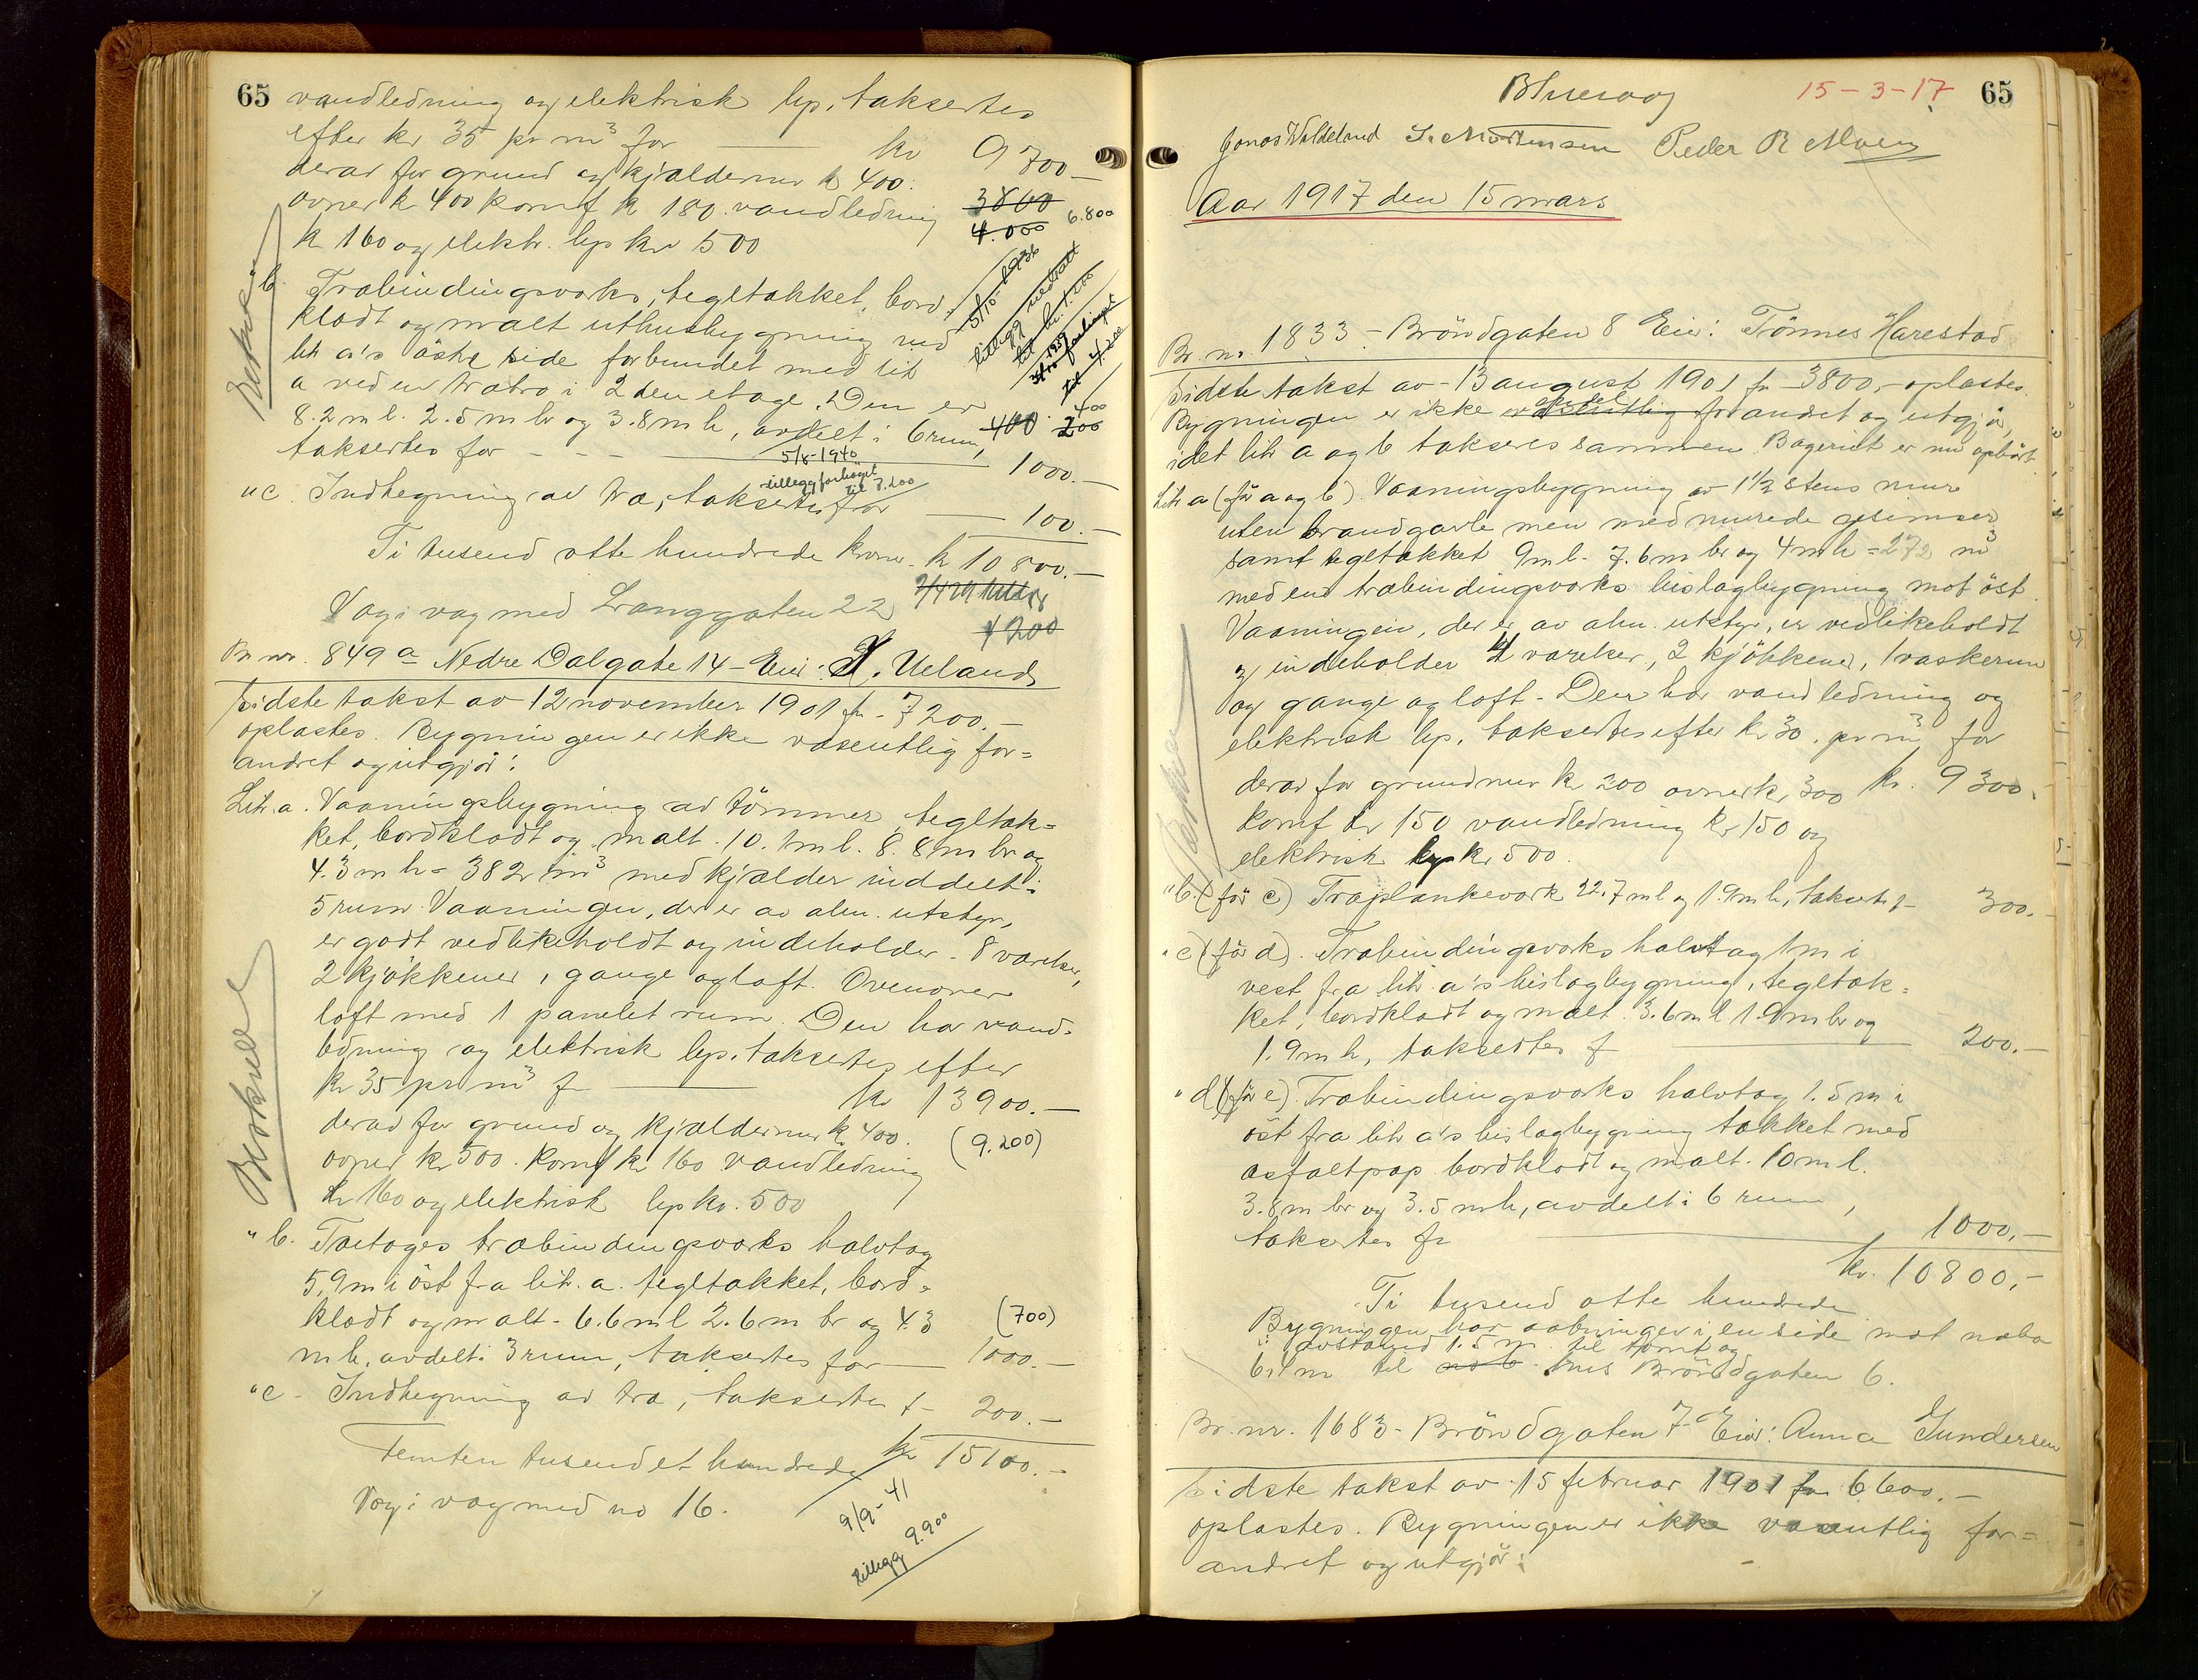 65
vandledning og elektrisk lys, taksertes
efter kr 35 pr m³ for kr 9700.—
derav for grund og kjældermur kr 400.
ovner kr 400 komf kr 180 vandledning 3800 6.800
kr 160 og elektr. lys kr 500 4.000
"b. Træbindingsverks, tegltækket, bord-
klædt og malt uthusbygning ved
litr a's østre side forbundet med litr
a ved en træbro i 2den etage. Den er
8.2 m l. 2.5 m br og 3.8 m h, avdelt i 6 rum, 400 200 400
taksertes for - - - 1000.—
5/10-1936
tillegg nedsatt
til kr. 1.200
1939
forhøiget
til 4/200
5/8-1940
tillegg forhøget
til 7.200
"c. Indhegning av træ, taksertes for 100.—
Ti tusend otte hundrede kroner. kr 10800.—
Væg i væg med Langgaten 22
7200
Br nr. 849a Nedre Dalgate 14 - Eier: H. Ueland
Sidste takst av 12 november 1901 fr. 7200.—
oplæstes. Bygningen er ikke væsentlig for=
andret og utgjør:
Litr. a. Vaaningsbygning av tømmer, tegltæk=
ket, bordklædt og malt. 10.1 m l. 8.8 m br og
4.3 m h = 382 m³ med kjælder inddelt i
5 rum. Vaaningen, der er av alm. utstyr,
er godt vedlikeholdt og indeholder - 8 værelser,
2 kjøkkener, gange og loft. Ovenover
loft med 1 panelet rum. Den har vand-
ledning og elektrisk lys. taksertes efter
kr 35 pr m³ f kr 13900.—
derav for grund og kjældermur kr. 400. (9.200)
ovner kr 500. komf kr 160 vandledning
kr 160 og elektrisk lys kr. 500
"b. Toetages træbindingsverks halvtag
5.9 m i øst fra litr. a. tegltækket, bord=
klædt og malt - 6.6 m l 2.6 m br og 4.3 (700)
m h. avdelt i 3 rum, taksertes for 1000.—
"c - Indhegning av træ, taksertes f - 200.—
Femten tusend et hundrede kr 15100.—
Væg i væg med no 16.
9/9-41
tillegg 9.900
15-3-17 65
Jonas Woldeland S. Mortensen Peder R
Aar 1917 den 15 mars
Br. nr. 1833 - Brøndgaten 8 Eier: Tønnes Harestad
Sidste takst av - 13 august 1901 fr 3800,- oplæstes.
Bygningen er ikke væsentlig forandret og utgjør,
idet litr a og b takseres sammen. Bageriet er nu ophørt
Litr a (før a og b). Vaaningsbygning av 1½ stens mur
uten brandgavle men med murede gesimser
samt tegltækket 9 m l. 7.6 m br og 4 m h = 272 m³
med en træbindingsverks bislagbygning mot øst.
Vaaningen, der er av alm. utstyr, er vedlikeholdt
og indeholder 4 værelser, 2 kjøkkener, 1 vaskerum
og gange og loft - Den har vandledning og
elektrisk lys, taksertes efter kr 30. pr m³ for
derav for grundmur kr 200 ovner kr 300 kr. 9300.
komf kr 150 vandledning kr 150 og
elektrisk lys kr 500.
"b. (før c) Træplankeverk 22.7 m l og 1.9 m h, taksertes f - 300.—
"c (før d). Træbindingsverks halvtag 1 m i
vest fra litr a's bislagbygning, tegltæk=
ket, bordklædt og malt. 3.6 m l 1.9 m br og
1.9 m h, taksertes f 200.—
"d (før e). Træbindingsverks halvtag 1.5 m i
øst fra litr a's bislagbygning tækket med
asfaltpap bordklædt og malt. 10 m l.
3.8 m br og 3.5 m h, avdelt i 6 rum,
taksertes fr 1000,—
kr. 10800,—
Ti tusend otte hundrede
Bygningen har aabninger i en side mot nabo
i avstand 1.5 m til tomt og
6.1 m til hus Brøndgaten 6.
Br. nr. 1683 - Brøndgaten 7 Eier: Anna Gundersen
Sidste takst av 15 februar 1901 fr 6600.—
oplæstes. Bygningen er ikke væsentlig for=
andret og utgjør: